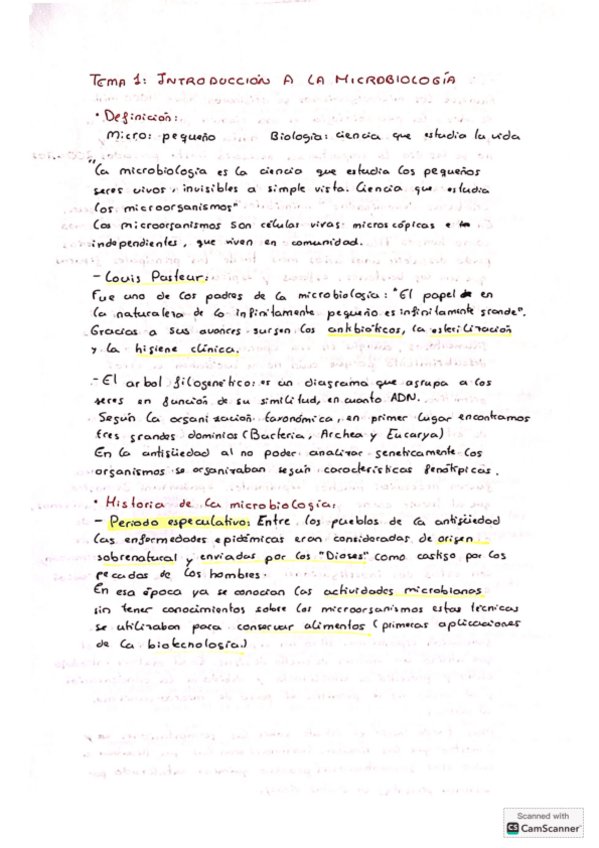 TEMA 1: INTRODUCCIÓN A LA MICROBIOLOGÍA
• Definición:
Micro: pequeño Biología: ciencia que estudia la vida
"La microbiología es la ciencia que estudia los pequeños
seres vivos invisibles a simple vista. Ciencia que estudia
los microorganismos"
Los microorganismos son células vivas microscópicas e
independientes, que viven en comunidad.
- Louis Pasteur:
Fue uno de los padres de la microbiología: "El papel de en
la naturaleza de lo infinitamente pequeño es infinitamente grande".
Gracias a sus avances surgen los antibióticos, la esterilización
y la higiene clínica.
- El arbol filogenético: es un diagrama que agrupa a los
seres en función de su similitud, en cuanto ADN.
Según la organización taxonómica, en primer lugar encontramos
tres grandes dominios (Bacteria, Archea y Eucarya)
En la antigüedad al no poder analizar geneticamente los
organismos se organizaban según características fenotípicas.
• Historia de la microbiología:
- Periodo especulativo: Entre los pueblos de la antigüedad
las enfermedades epidémicas eran consideradas de origen
sobrenatural y enviadas por los "Dioses" como castigo por los
pecados de los hombres.
En esa época ya se conocían las actividades microbianas
sin tener conocimientos sobre los microorganismos estas técnicas
se utilizaban para conservar alimentos (primeras aplicaciones
de la biotecnología.)
Scanned with
CS CamScanner